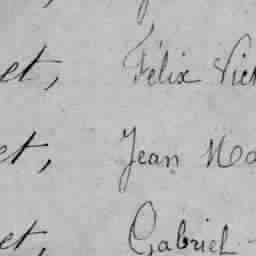 et, Félix Vic
et, Jean Ma
et, Gabriel